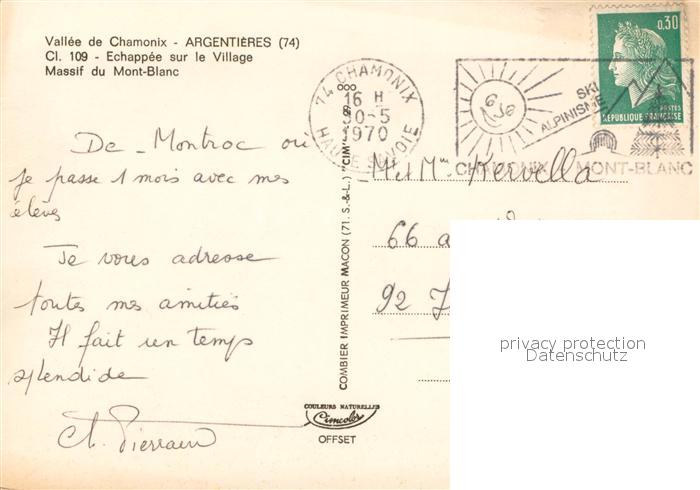 Vallée de Chamonix - ARGENTIÈRES (74)
Cl. 109 - Echappée sur le Village
Massif du Mont-Blanc
De Montroc où
je passe 1 mois avec mes
élèves
Je vous adresse
toutes mes amitiés
Il fait un temps
splendide
Ch. Pierrain
COMBIER IMPRIMEUR MACON (71. S.-&-L.) "CIM"
COULEURS NATURELLES
Cimcolor
OFFSET
74 CHAMONIX
16 H
30-5
1970
HAUTE-SAVOIE
SKI
ALPINISME
CHAMONIX MONT-BLANC
0,30
POSTES
REPUBLIQUE FRANÇAISE
M et Mme Kervella
66 a
92
privacy protection
Datenschutz